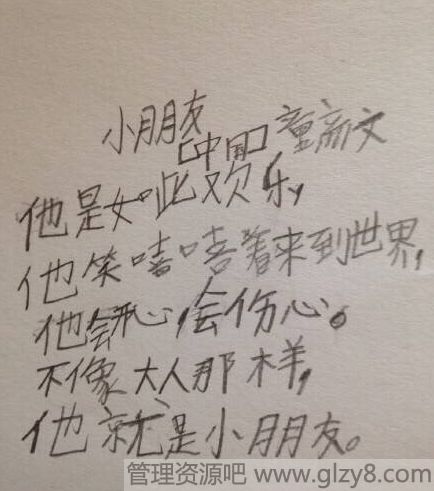 小朋友
[中国]童新文
他是如此欢乐,
他笑嘻嘻着来到世界,
他会开心,会伤心。
不像大人那样,
他就是小朋友。
管理资源吧 www.glzy8.com